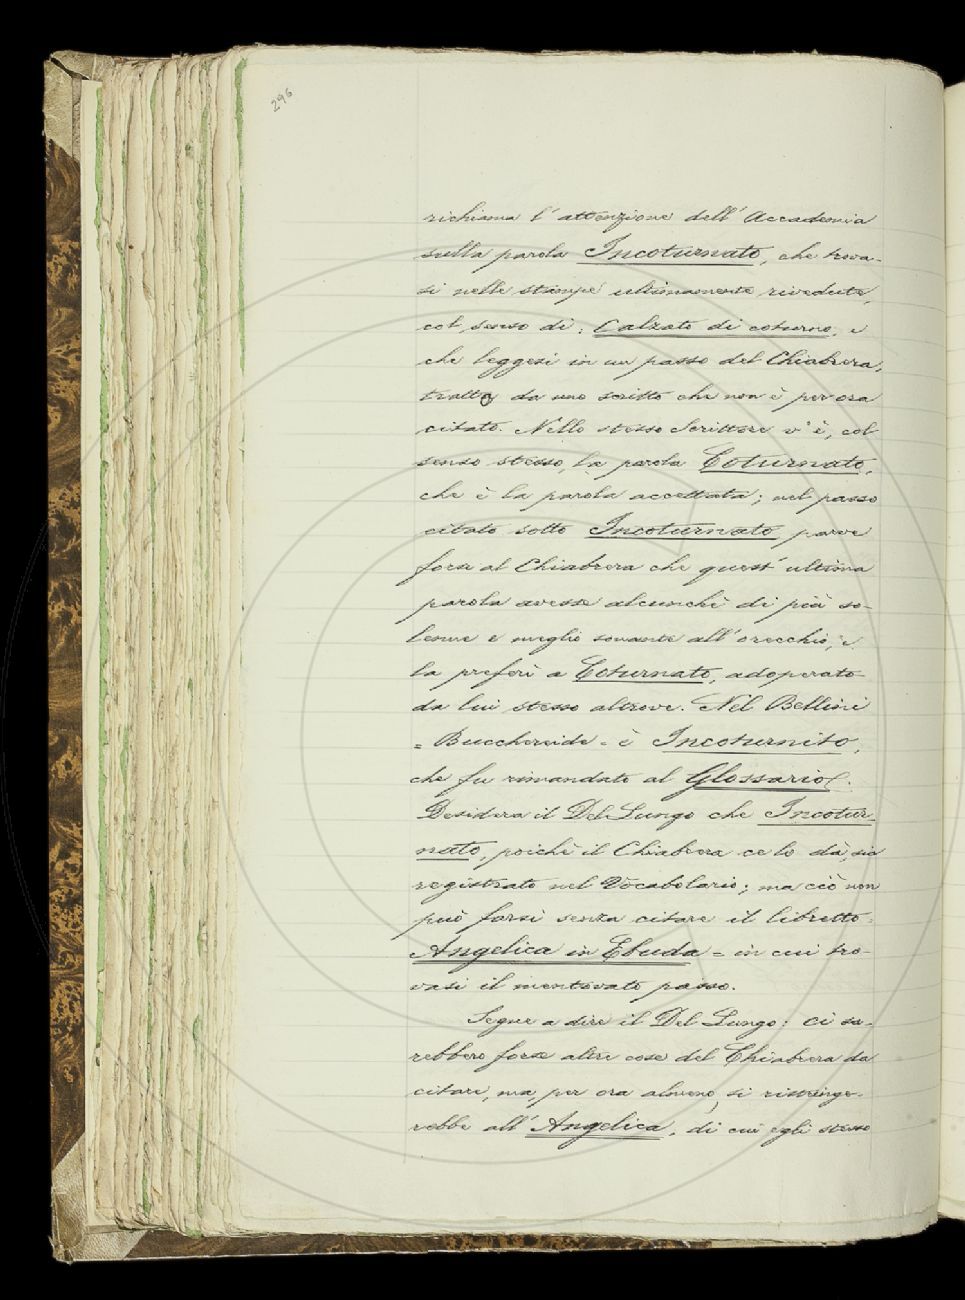 296
richiama l'attenzione dell'Accademia
sulla parola Incoturnato, che trova-
si nelle stampe ultimamente rivedute,
col senso di: Calzato di coturno, e
che leggesi in un passo del Chiabrera,
tratto da uno scritto che non è per ora
citato. Nello stesso Scrittore v'è, col
senso stesso, la parola Coturnato,
che è la parola accettata; nel passo
citato sotto Incoturnato parve
forse al Chiabrera che quest'ultima
parola avesse alcunchè di più so-
lenne e meglio sonante all'orecchio, e
la preferì a Coturnato, adoperato
da lui stesso altrove. Nel Bellini
= Bucchereide = è Incoturnito,
che fu rimandato al Glossario.
Desidera il Del Lungo che Incotur-
nato, poichè il Chiabrera ce lo dà, sia
registrato nel Vocabolario; ma ciò non
può farsi senza citare il libretto =
Angelica in Ebuda = in cui tro-
vasi il mentovato passo.
Segue a dire il Del Lungo: Ci sa-
rebbero forse altre cose del Chiabrera da
citare, ma, per ora almeno, si ristringe-
rebbe all'Angelica, di cui egli stesso